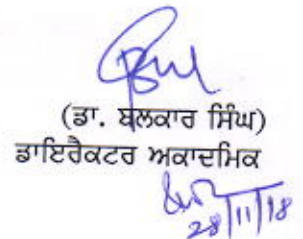 (ਡਾ. ਬਲਕਾਰ ਸਿੰਘ)
ਡਾਇਰੈਕਟਰ ਅਕਾਦਮਿਕ
28/11/18